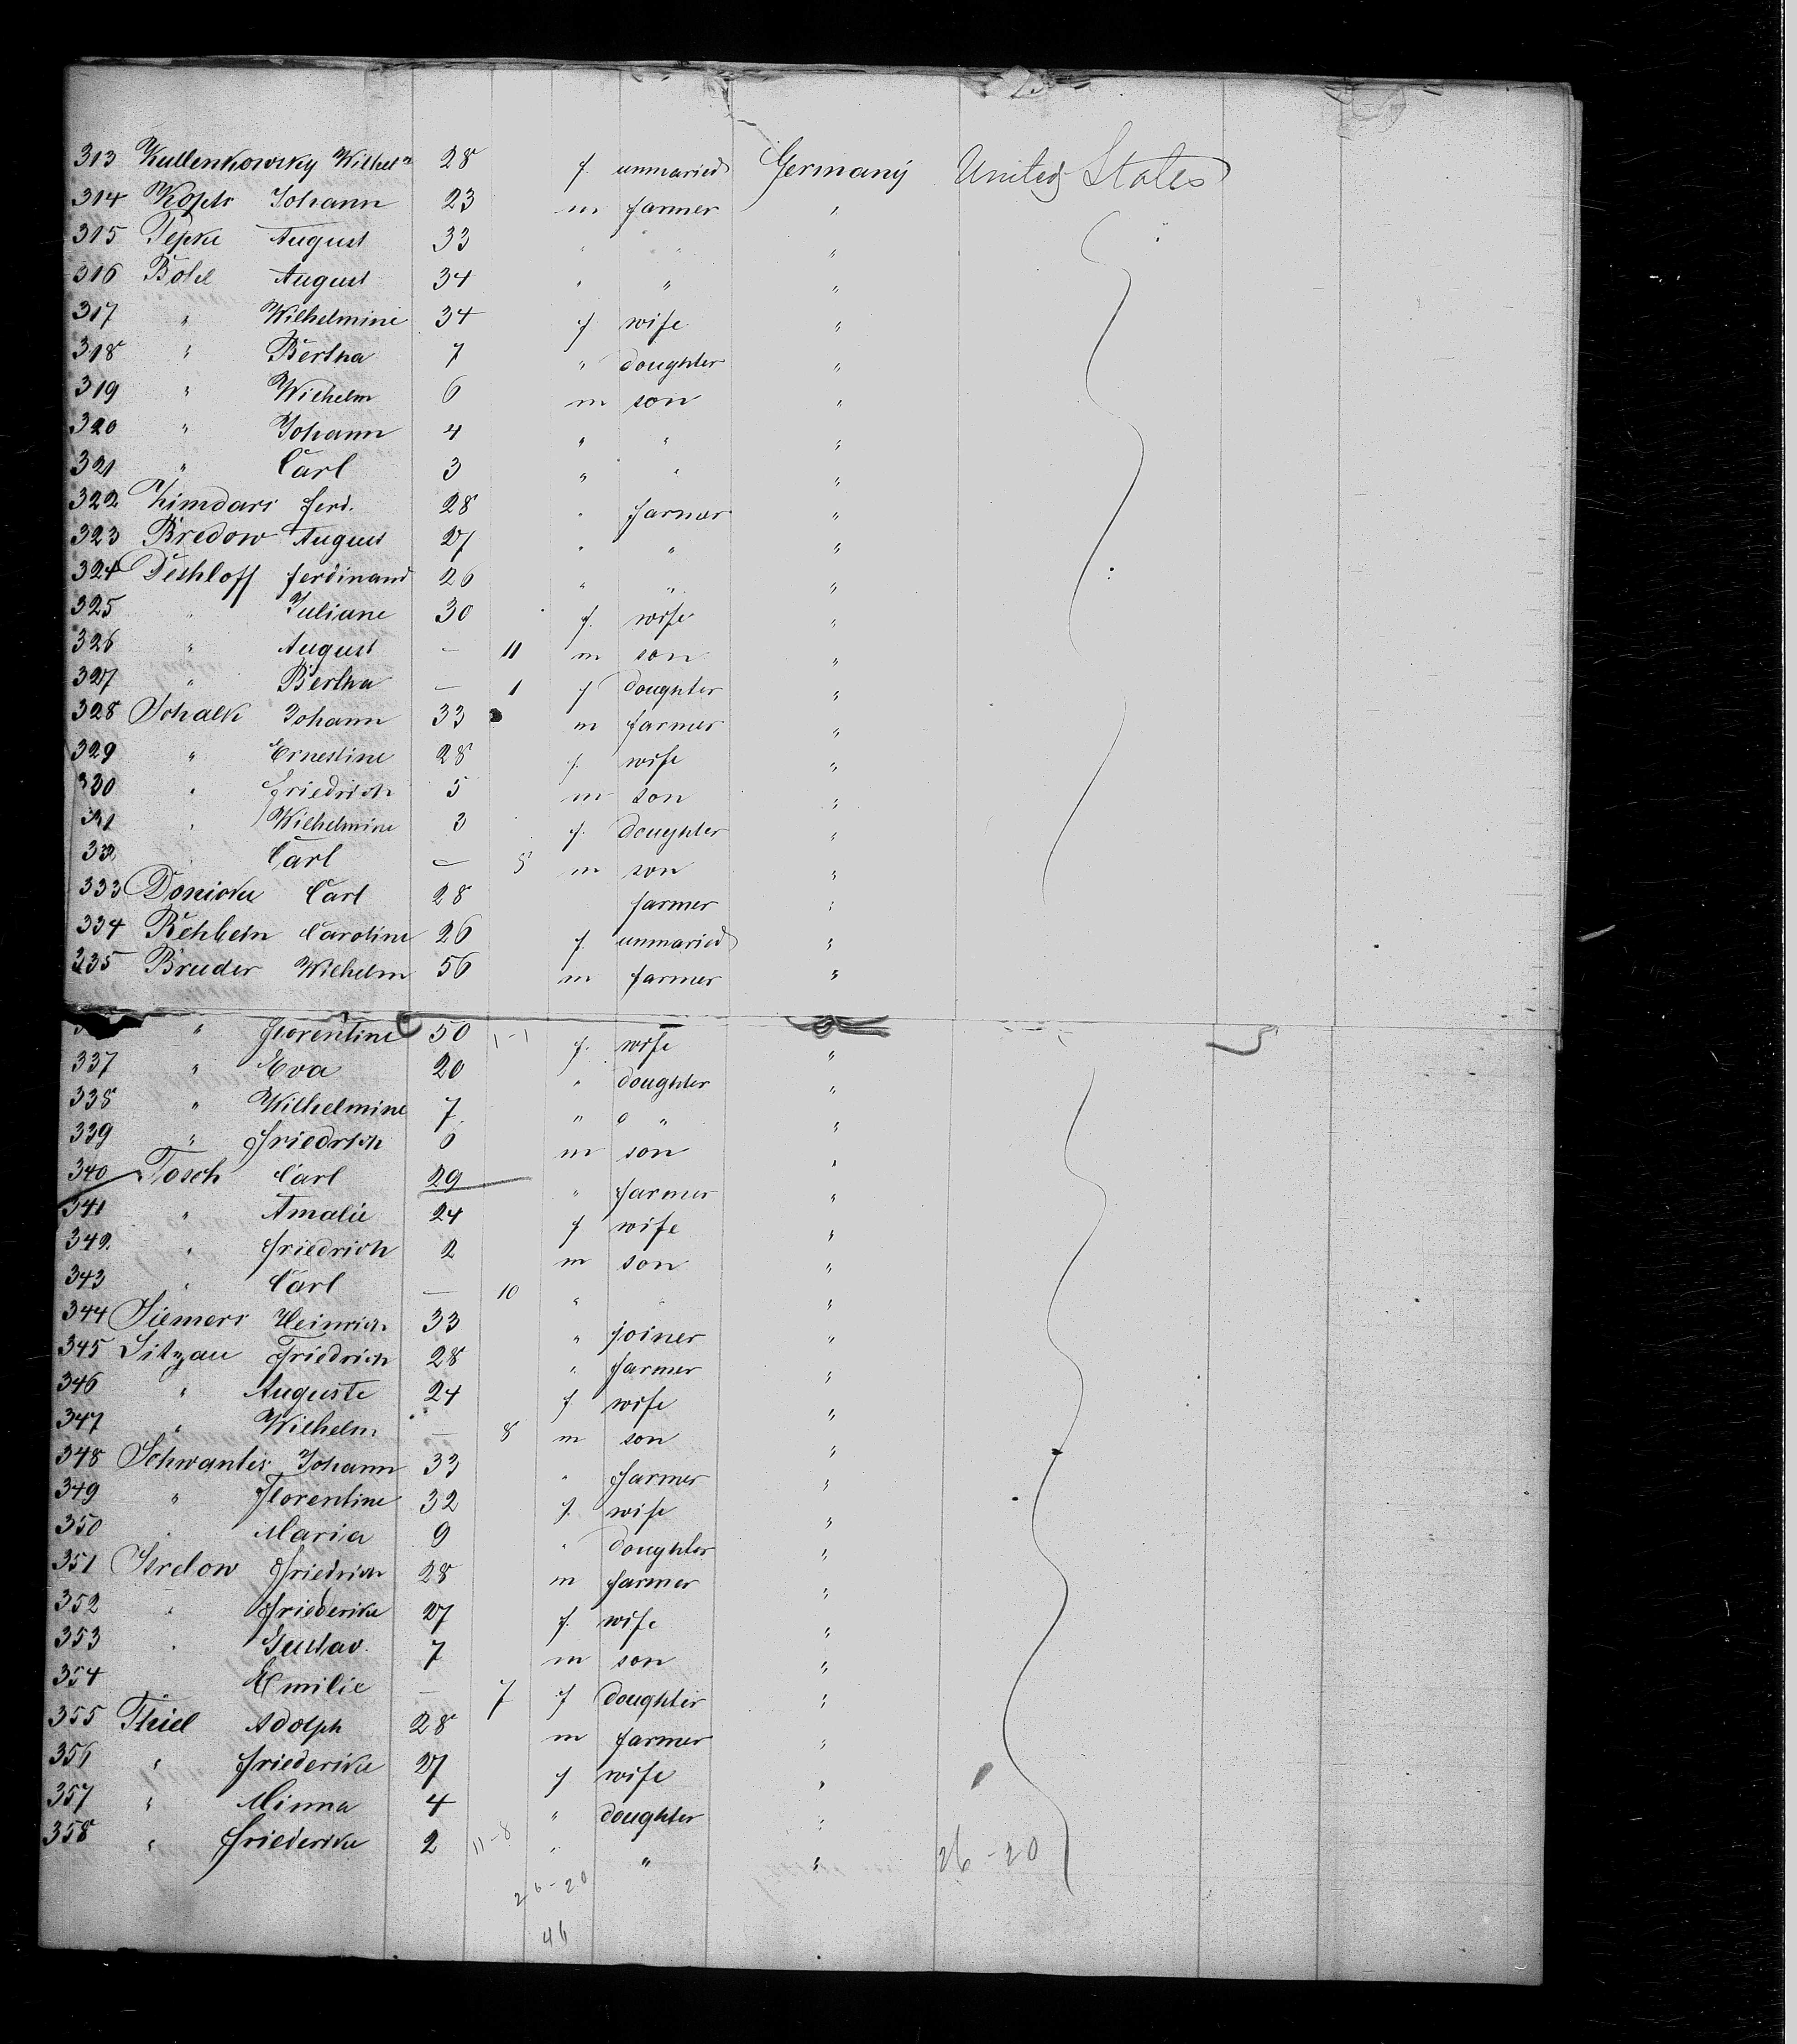 313 Kullenkowsky Wilhel^m 28 f. unmaried Germany United States
314 Johann 23 m farmer "
315 Tepke August 33 " " "
316 August 34 " " "
317 " Wilhelmine 34 f wife "
318 " Bertha 7 " doughter "
319 " Wilhelm 6 m son "
320 " Johann 4 " " "
321 " Carl 3 " " "
322 Zimdars Ferd. 28 " farmer "
323 Bredow August 27 " " "
324 Dethloff Ferdinand 26 " " "
325 " Juliane 30 f. wife "
326 " August — 11 m son "
327 " Bertha — 1 f doughter "
328 Schalk Johann 33 m farmer "
329 " Ernestine 28 f. wife "
330 " Friedrich 5 m son "
331 " Wilhelmine 3 f. doughter "
332 " Carl — 5 m son "
333 Carl 28 farmer "
334 Rehbein Caroline 26 f. unmaried "
335 Breuder Wilhelm 56 m farmer "
" Florentine 50 1-1 f. wife "
337 " Eva 20 " doughter "
338 " Wilhelmine 7 " " "
339 " Friedrich 6 m son "
340 Tosch Carl 29 " farmer "
341 " Amalie 24 f wife "
342 " Friedrich 2 m son "
343 " Carl — 10 " " "
344 Siemers Heinrich 33 " joiner "
345 Sitzau Friedrich 28 " farmer "
346 " Auguste 24 f. wife "
347 " Wilhelm — 8 m son "
348 Schwantes Johann 33 " farmer "
349 " Florentine 32 f. wife "
350 " Maria 9 " doughter "
351 Strelow Friedrich 28 m farmer "
352 " Friederike 27 f. wife "
353 " Gustav. 7 m son "
354 Emilie — 7 f doughter "
355 Thiel Adolph 28 m farmer "
356 " Friederike 27 f wife "
357 " Minna 4 " doughter "
358 " Friederike 2 11-8 " " " 26-20
26-20
46